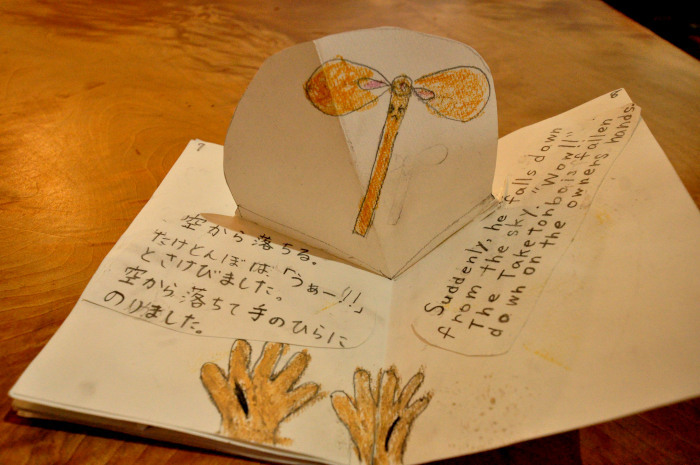 7
空から落ちる。
たけとんぼは、「うぁーり!」
とさけびました。
空から落ちて手のひらに
のりました。
Suddenly, he falls down
from the sky.
The Taketonbo "Wow!!"
is fallen
down on the owners hands.